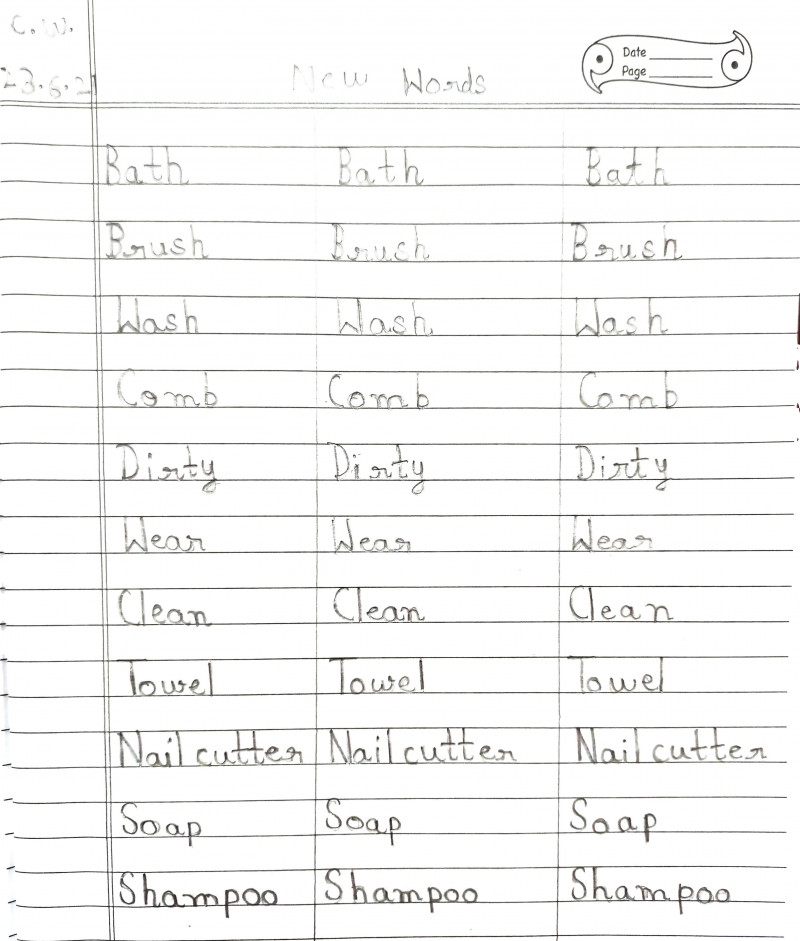 C.W.
Date
23.6.21 New Words
Page
Bath Bath Bath
Brush Brush Brush
Wash Wash Wash
Comb Comb Comb
Dirty Dirty Dirty
Wear Wear Wear
Clean Clean Clean
Towel Towel Towel
Nail cutter Nail cutter Nail cutter
Soap Soap Soap
Shampoo Shampoo Shampoo